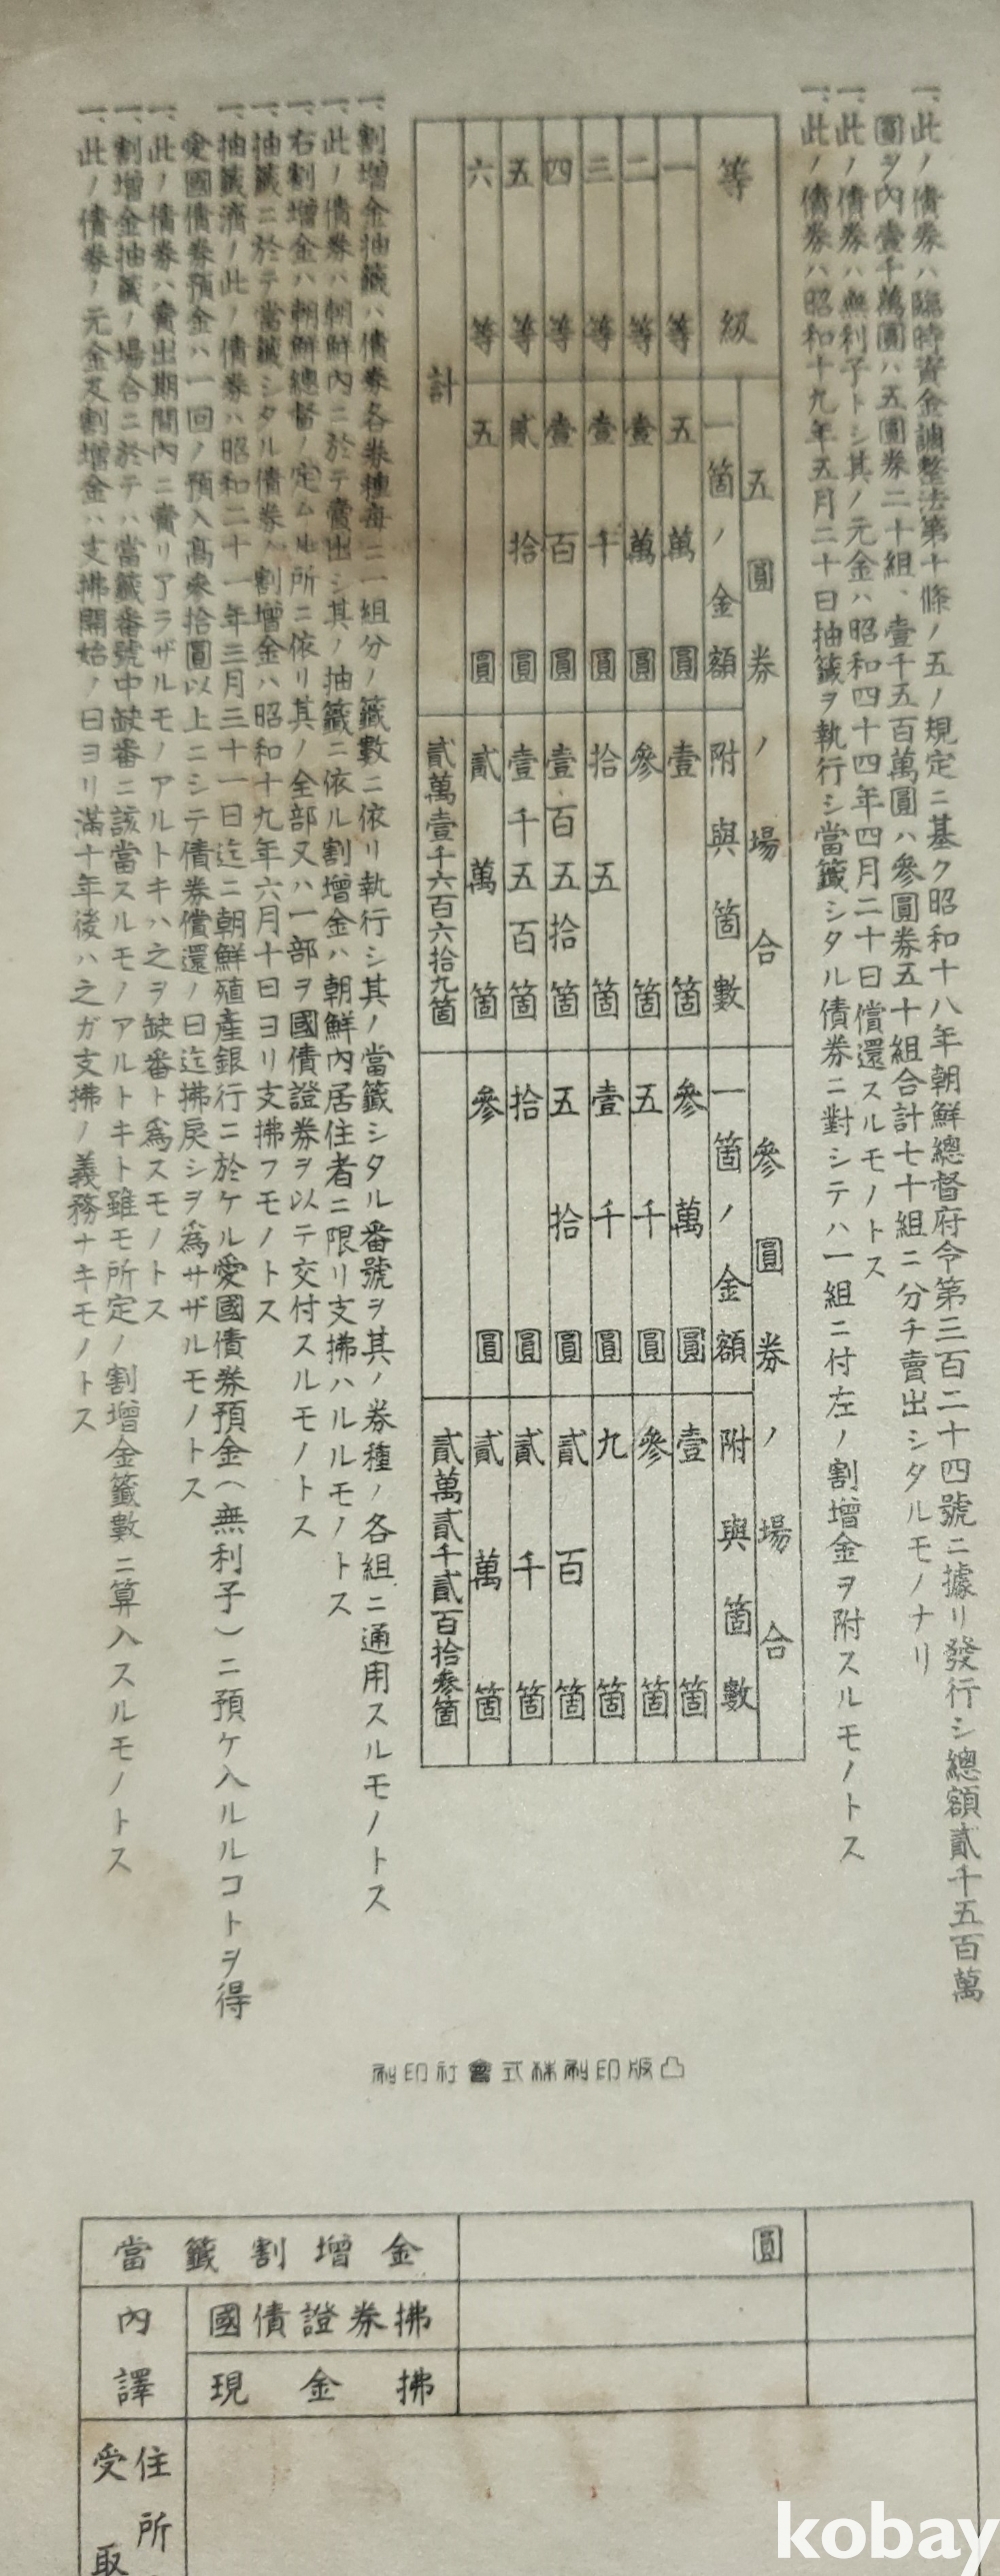 一、此ノ債券ハ臨時資金調整法第十條ノ五ノ規定ニ基ク昭和十八年朝鮮總督府令第三百二十四號ニ據リ發行シ總額貳千五百萬
圓ヲ內壹千萬圓ハ五圓券二十組、壹千五百萬圓ハ參圓券五十組合計七十組ニ分チ賣出シタルモノナリ
一、此ノ債券ハ無利子トシ其ノ元金ハ昭和四十四年四月二十日償還スルモノトス
一、此ノ債券ハ昭和十九年五月二十日抽籤ヲ執行シ當籤シタル債券ニ對シテハ一組ニ付左ノ割增金ヲ附スルモノトス
等級 五圓券ノ場合 參圓券ノ場合
一箇ノ金額 附與箇數 一箇ノ金額 附與箇數
一等 五萬圓 壹箇 參萬圓 壹箇
二等 壹萬圓 參箇 五千圓 參箇
三等 壹千圓 拾五箇 壹千圓 九箇
四等 壹百圓 壹百五拾箇 五拾圓 貳百箇
五等 貳拾圓 壹千五百箇 拾圓 貳千箇
六等 五圓 貳萬箇 參圓 貳萬箇
計 貳萬壹千六百六拾九箇 貳萬貳千貳百拾參箇
一、割增金抽籤ハ債券各券種每ニ一組分ノ籤數ニ依リ執行シ其ノ當籤シタル番號ヲ其ノ券種ノ各組ニ通用スルモノトス
一、此ノ債券ハ朝鮮內ニ於テ賣出シ其ノ抽籤ニ依ル割增金ハ朝鮮內居住者ニ限リ支拂ハルルモノトス
一、右割增金ハ朝鮮總督ノ定ムル所ニ依リ其ノ全部又ハ一部ヲ國債證券ヲ以テ交付スルモノトス
一、抽籤ニ於テ當籤シタル債券ノ割增金ハ昭和十九年六月十日ヨリ支拂フモノトス
一、抽籤濟ノ此ノ債券ハ昭和二十一年三月三十一日迄ニ朝鮮殖產銀行ニ於ケル愛國債券預金(無利子)ニ預ケ入ルルコトヲ得
愛國債券預金ハ一回ノ預入高參拾圓以上ニシテ債券償還ノ日迄拂戾シヲ爲サザルモノトス
一、此ノ債券ハ賣出期間內ニ賣リアラザルモノアルトキハ之ヲ缺番ト爲スモノトス
一、割增金抽籤ノ場合ニ於テハ當籤番號中缺番ニ該當スルモノアルトキト雖モ所定ノ割增金籤數ニ算入スルモノトス
一、此ノ債券ノ元金及割增金ハ支拂開始ノ日ヨリ滿十年後ハ之ガ支拂ノ義務ナキモノトス
刷印社會式株刷印版凸
當籤割增金 圓
內譯 國債證券拂
現金拂
住所
受取
kobay